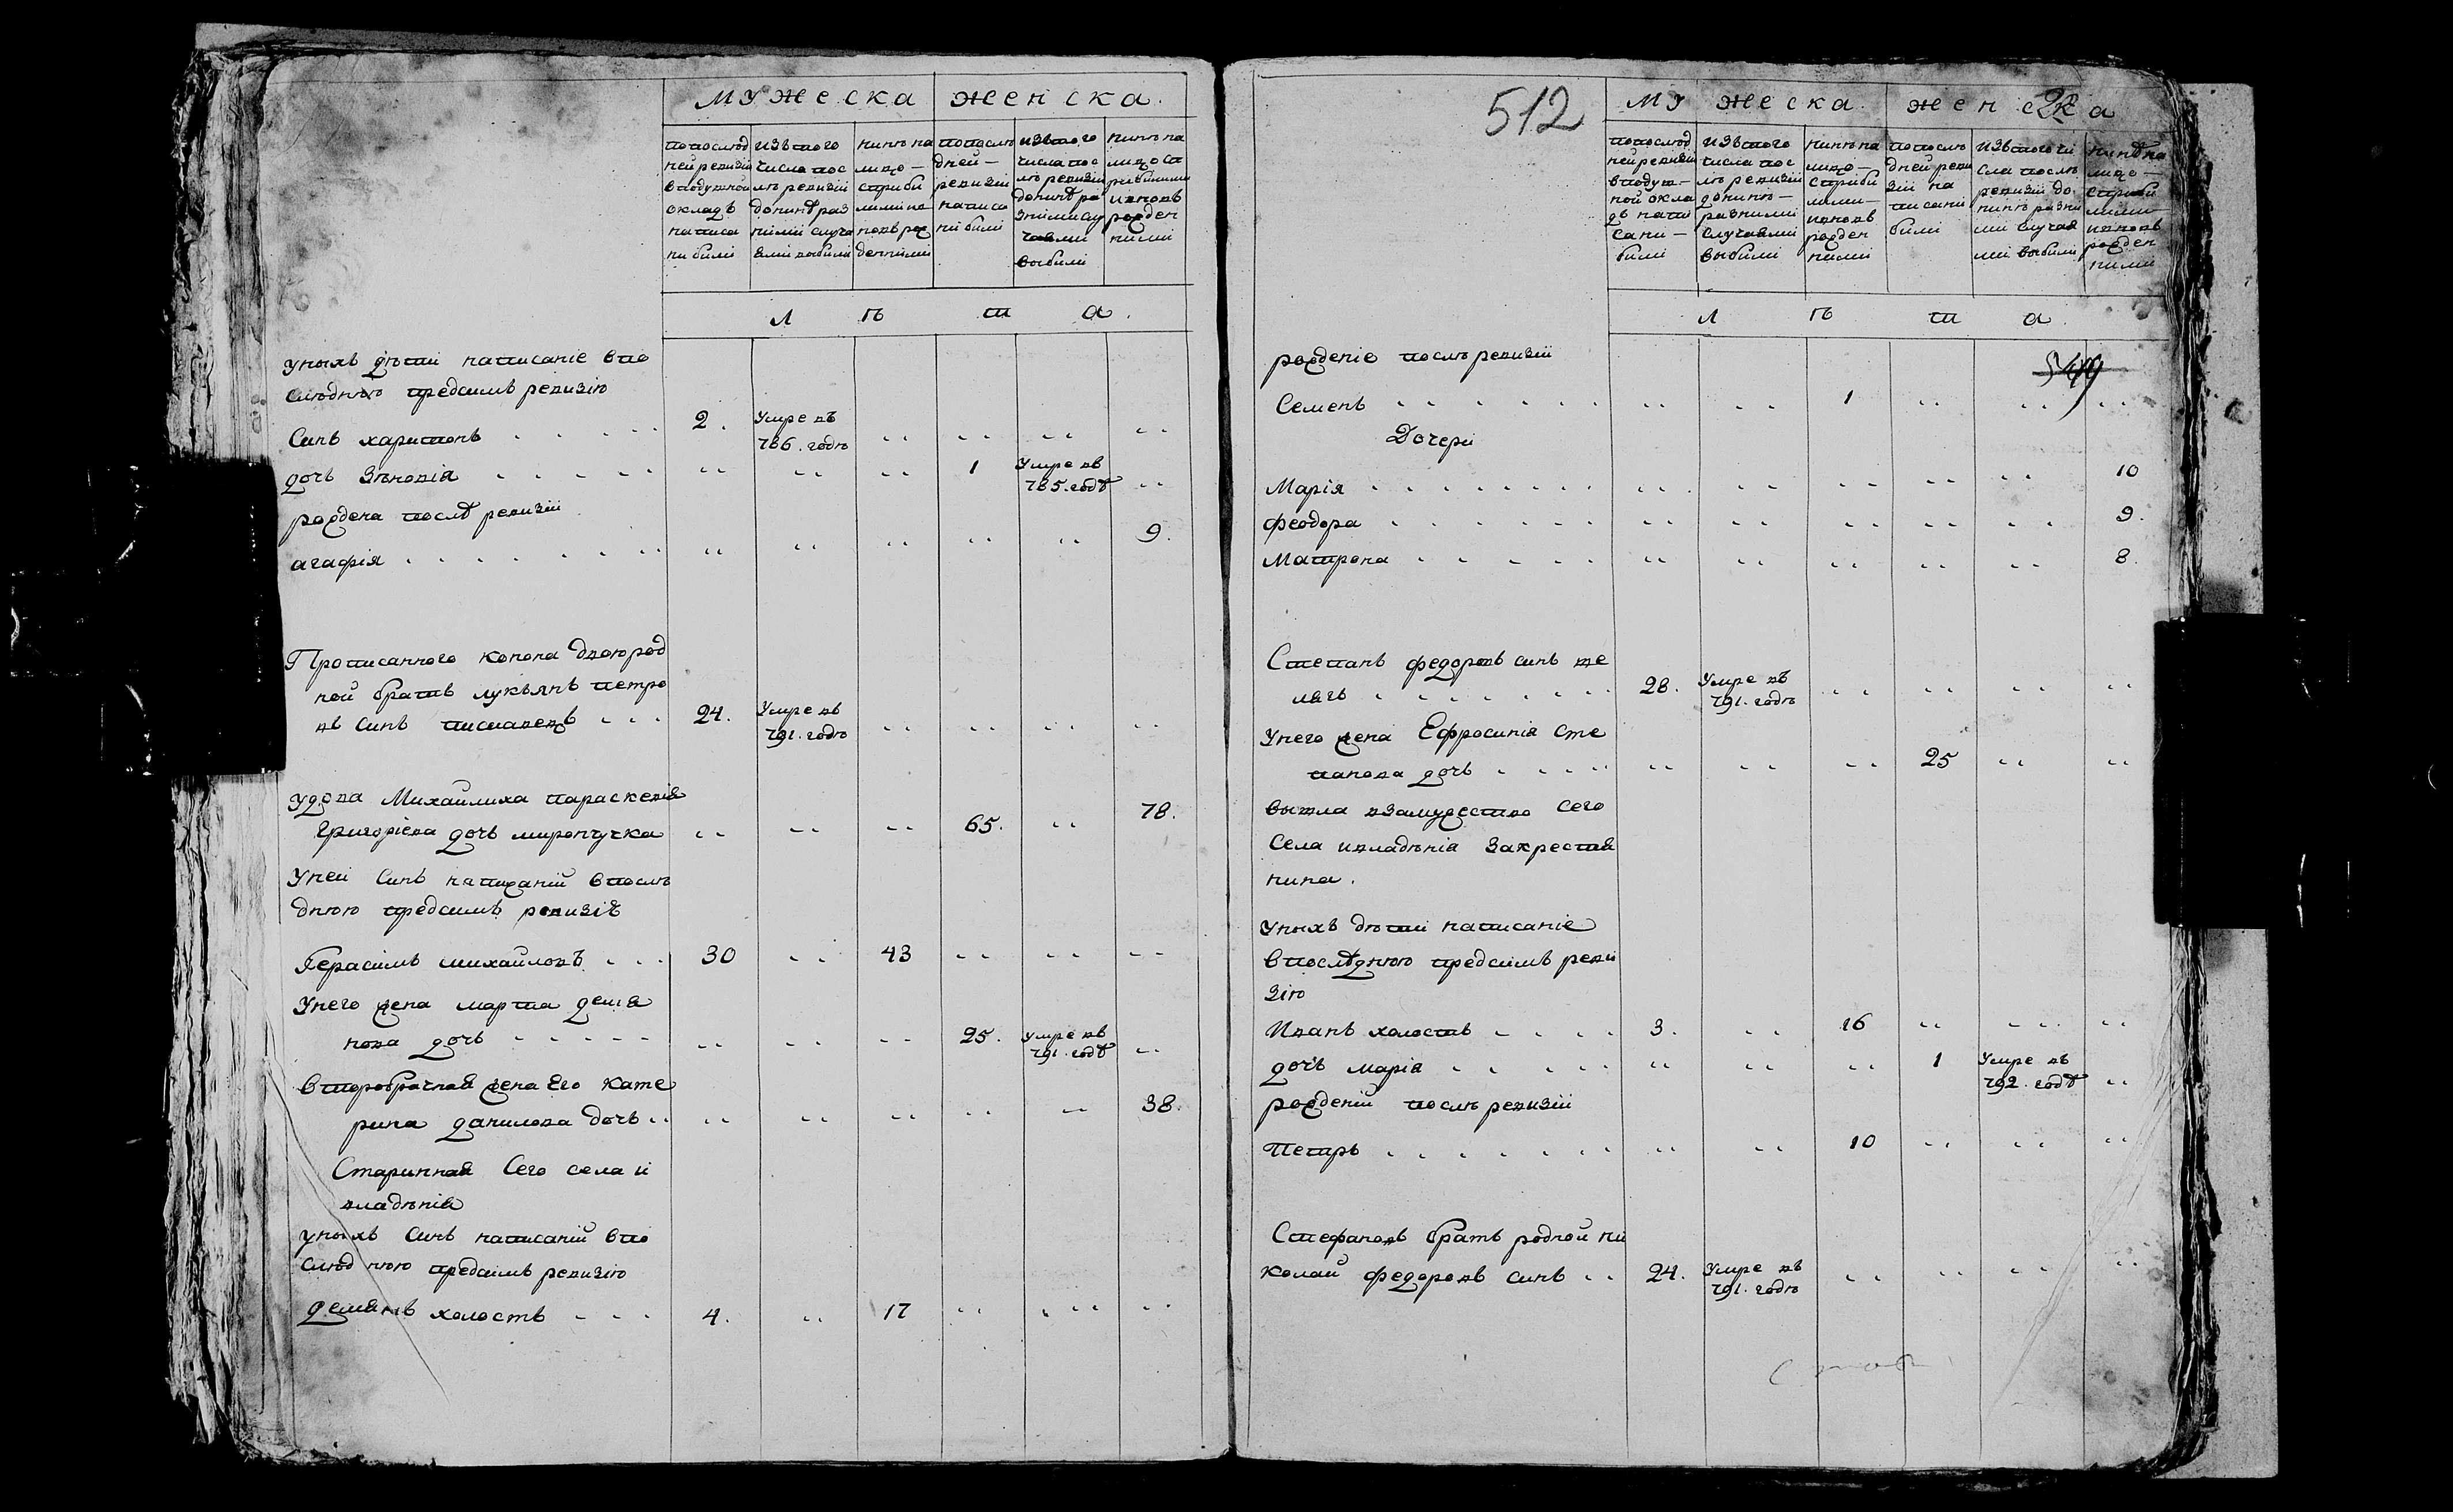 мужеска женска.
попослѣд
ней ревизіи
вподушной
окладъ
написа
ни були
изъ того
числа пос
лѣ ревизіи
донинѣ раз
ними случа
ями вибили
нинѣ на
лицо —
стриби
лими и
новь рож
денними
попослѣ
дней —
ревизіи
написа
ни били
изъ того
числа пос
лѣ ревизіи
донинѣ ра
зними слу
чаями
вибили
нинѣ на
лицо ст
рибилими
и вновъ
рожден
ними
л ѣ т а.
уныхъ дѣти написаніе впо
слѣднюю предсимъ ревизію
Синъ харитонъ 2. Умре въ
786. годѣ
дочь Зѣновія 1 Умре въ
785. годѣ
рождена послѣ ревизіи
агафія 9.
Прописанного конона двоюрод
ной братъ лукьянъ петро
въ синъ писманецъ 24. Умре въ
791. годѣ
удова Михайлиха параскевія
Григоріева дочь мирончука 65. 78.
Уней Синъ написаній впослѣ
днюю предсимъ ревизію
Герасимъ михайловъ 30 43
Унего жена марта демя
нова дочь 25. умре въ
791. годѣ
второбрачная жена Его кате
рина данилова дочь 38.
Старинная Сего села и
владѣнія
уныхъ Синъ написаній впо
слѣднюю предсимъ ревизію
демянъ холостъ 4. 17
512
мужеска. женска
22
попослѣд
ней ревизіи
вподуш—
ной окла
дъ напи
сани —
били
изъ того
числа пос
лѣ ревизіи
донинѣ —
разними
случаями
вибили
нинѣ на
лицо —
стриби
лими —
и вновь
рожден
ними
попослѣ
дней реви
зіи на
писани
били
изъ того чи
сла послѣ
ревизіи до
нинѣ разни
ми случая
ми вибили
нинѣ на
лицо —
стриби
лими —
и вновъ
рожден
ними
л ѣ т а
рожденіе послѣ ревизіи
Семенъ 1
Дочери
Марія 10
феодора 9.
Матрона 8.
Степанъ федоровъ синъ ше
лягъ 28. Умре въ
791. годѣ
Унего жена Ефросинія сте
панова дочь 25
вышла взамужество сего
села ивладѣнія закрестья
нина.
уныхъ дѣти написаніе
впослѣднюю предсимъ реви
зію
Иванъ холостъ 3. 16
дочь марія 1 Умре въ
792. годѣ
рожденій послѣ ревизіи
Петръ 10
Стефановъ братъ родной ни
колай федоровъ синъ 24. Умре въ
791. годѣ